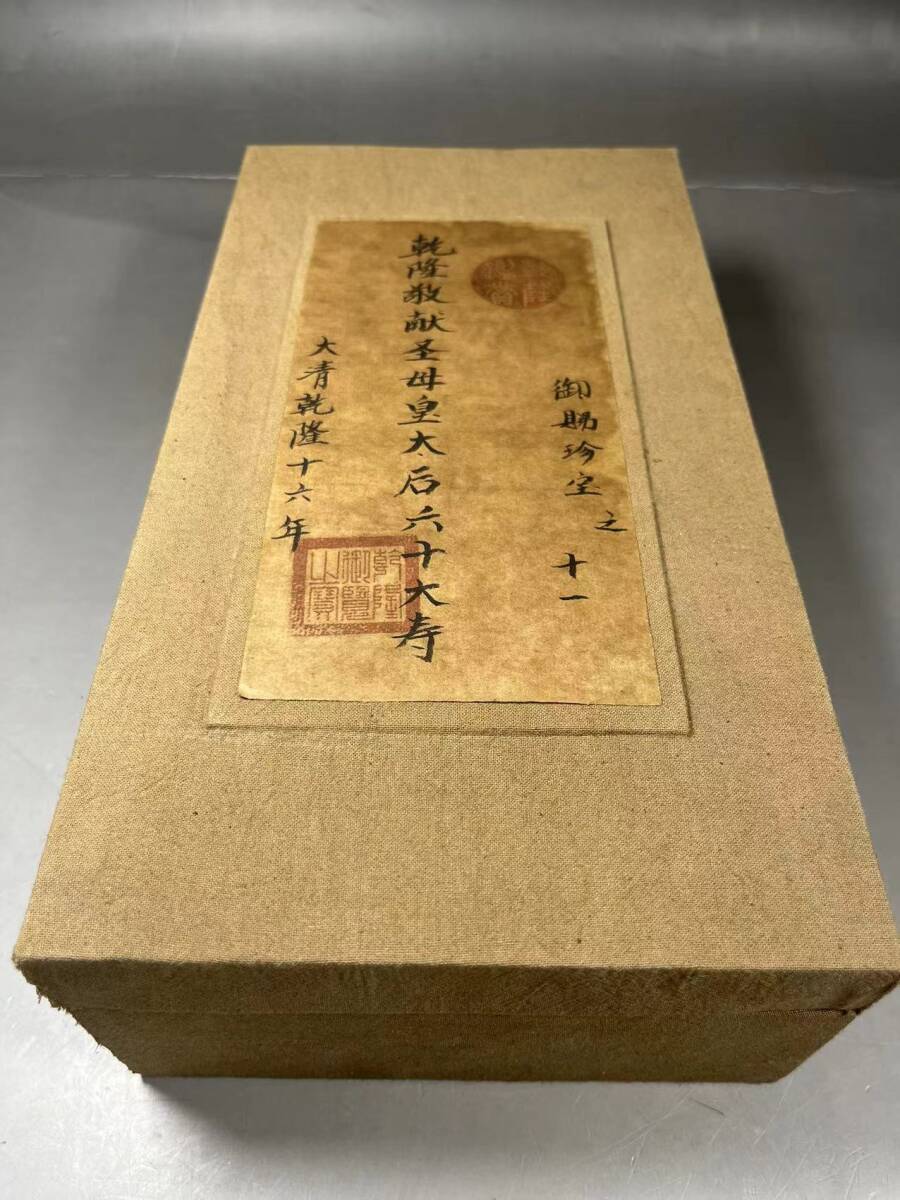 乾隆
賞
御賜珍宝之十一
乾隆敬献圣母皇太后六十大寿
大清乾隆十六年
乾隆
御覽
之寶